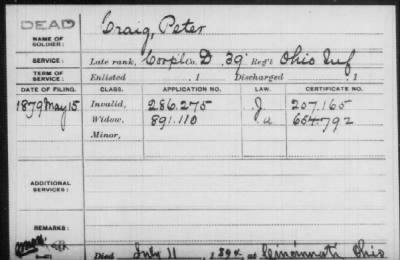 DEAD
NAME OF SOLDIER: Craig, Peter
SERVICE: Late rank, Corp'l Co. D. 39 Reg't Ohio Inf
TERM OF SERVICE: Enlisted , 1 Discharged , 1
DATE OF FILING. CLASS. APPLICATION NO. LAW. CERTIFICATE NO.
1879 May 15 Invalid, 286.275 J 207.165
Widow, 591.110 a 654.792
Minor,
ADDITIONAL SERVICES:
REMARKS:
Died July 11, 1894, at Cincinnati Ohio